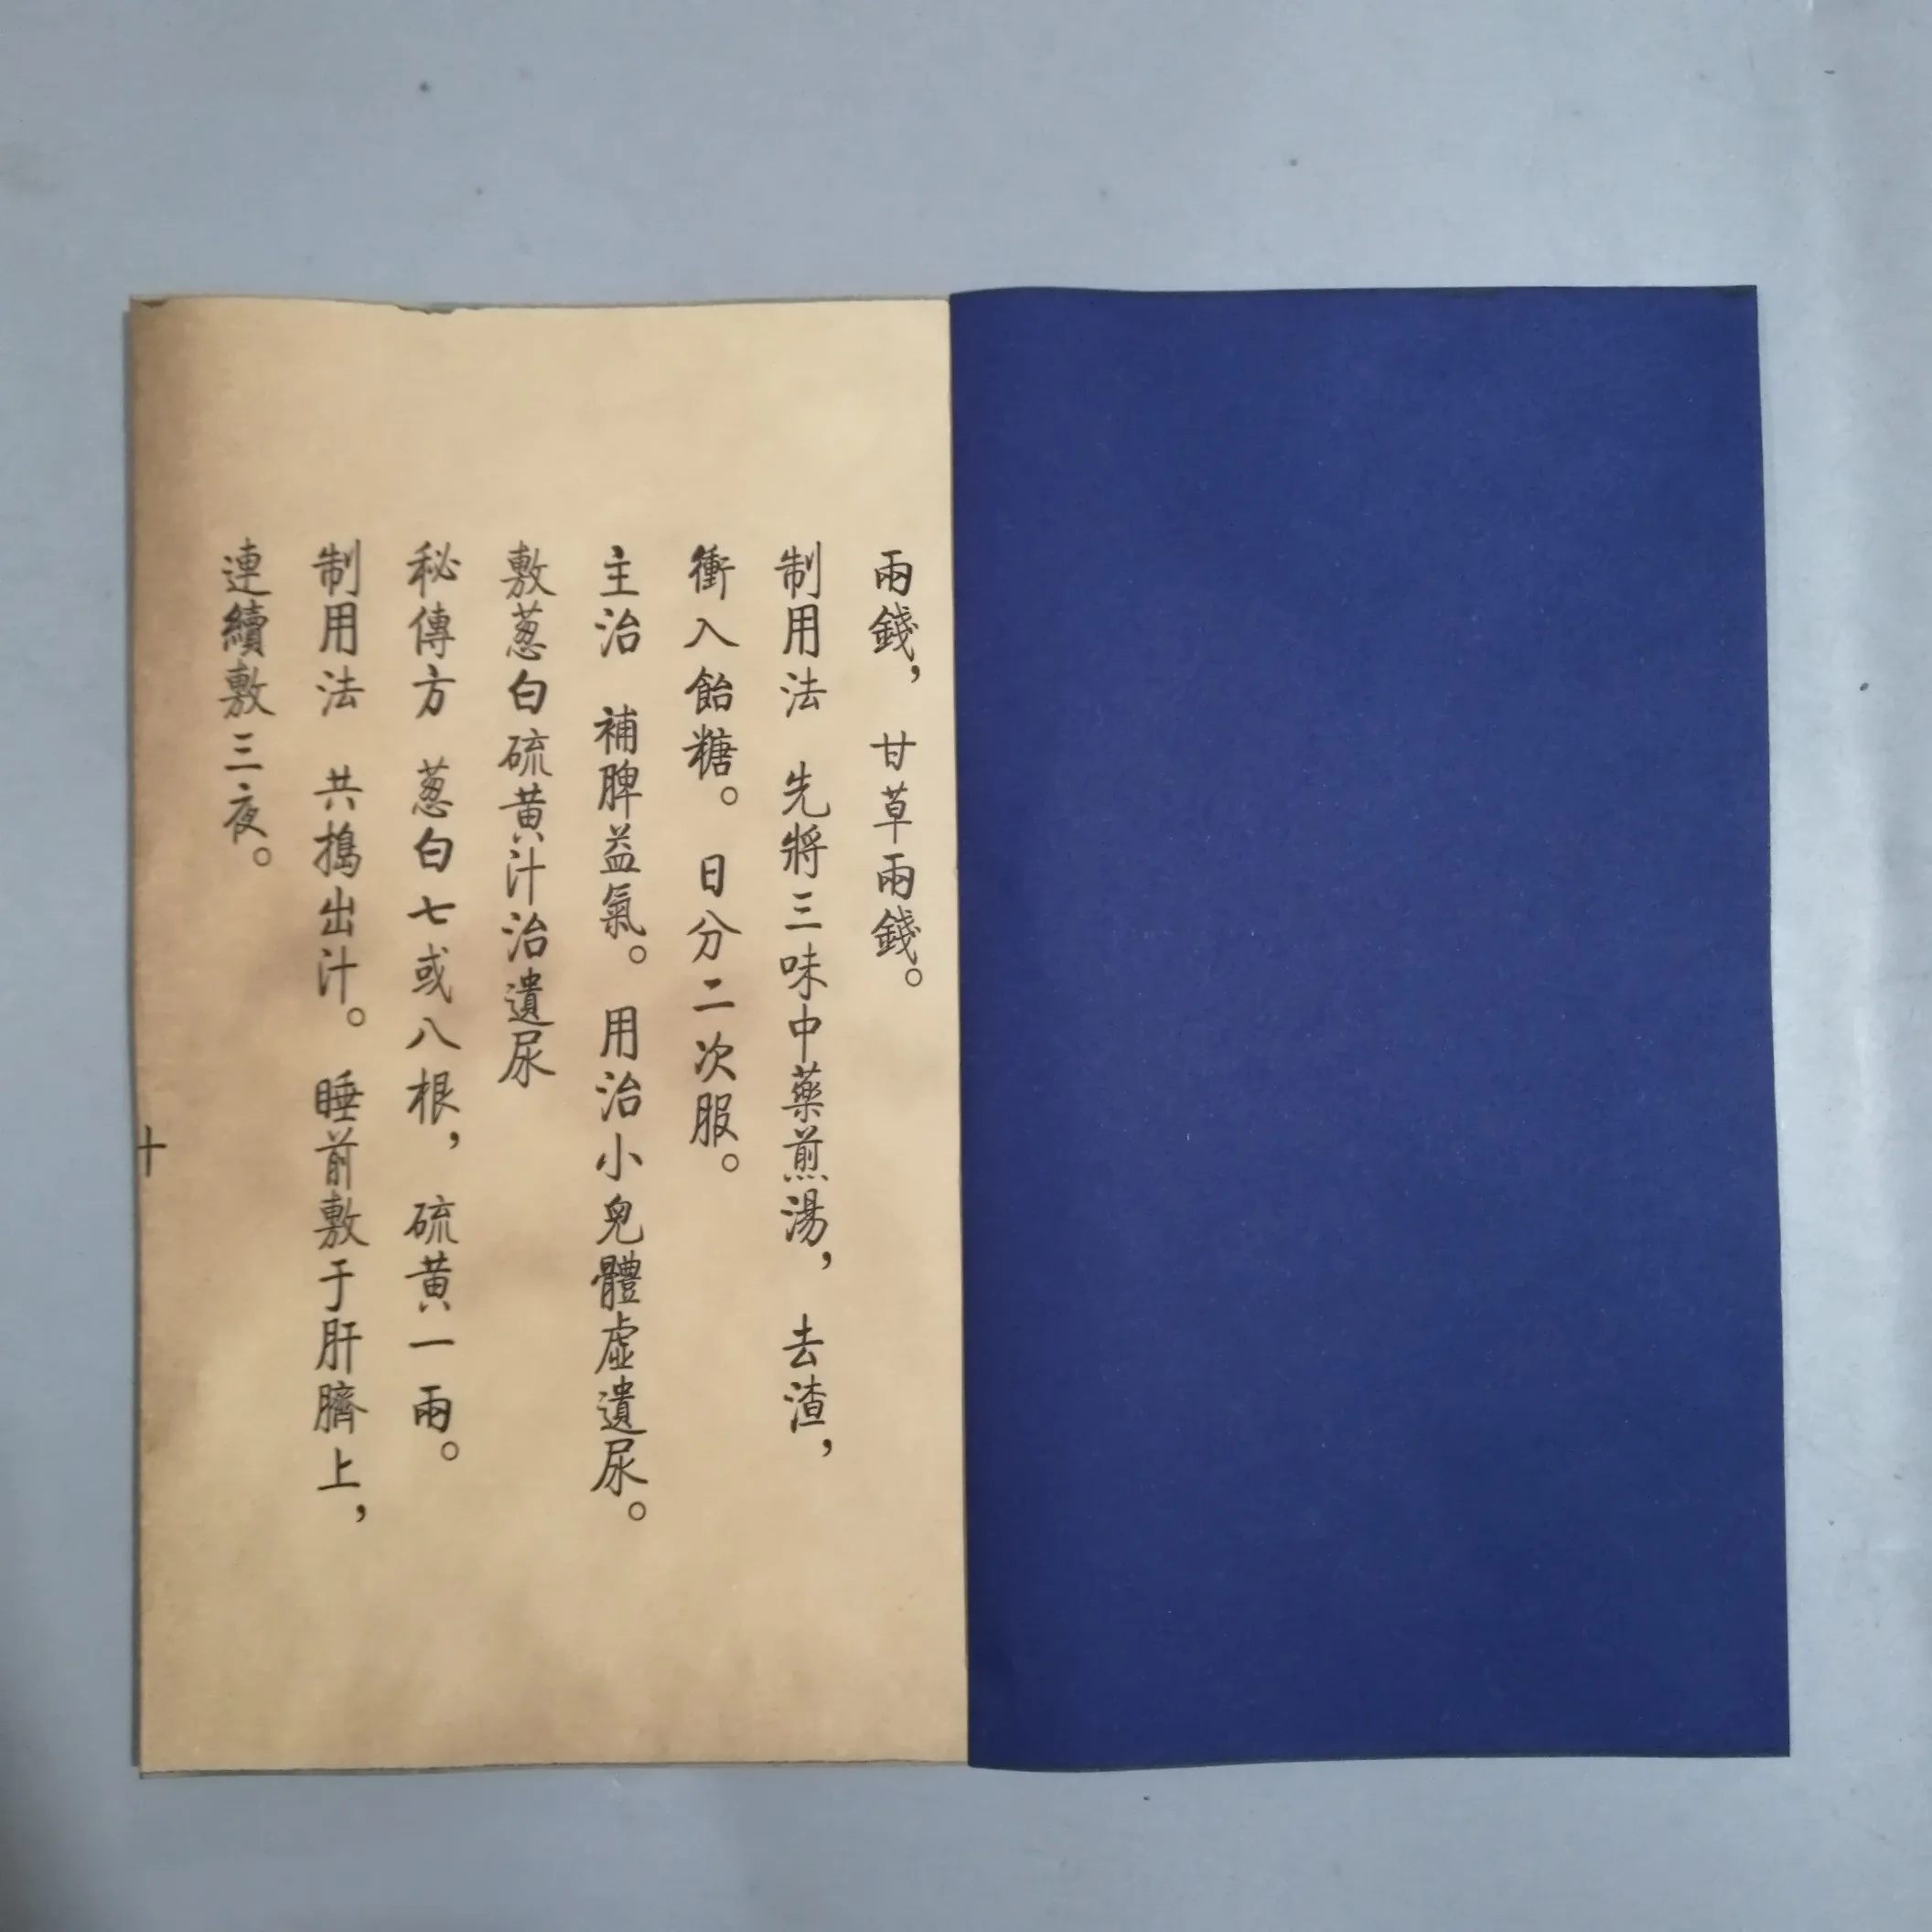 兩錢，甘草兩錢。
制用法　先將三味中藥煎湯，去渣，
衝入飴糖。日分二次服。
主治　補脾益氣。用治小兒體虛遺尿。
敷蔥白硫黃汁治遺尿
秘傳方　蔥白七或八根，硫黃一兩。
制用法　共搗出汁。睡前敷于肝臍上，
連續敷三夜。
十